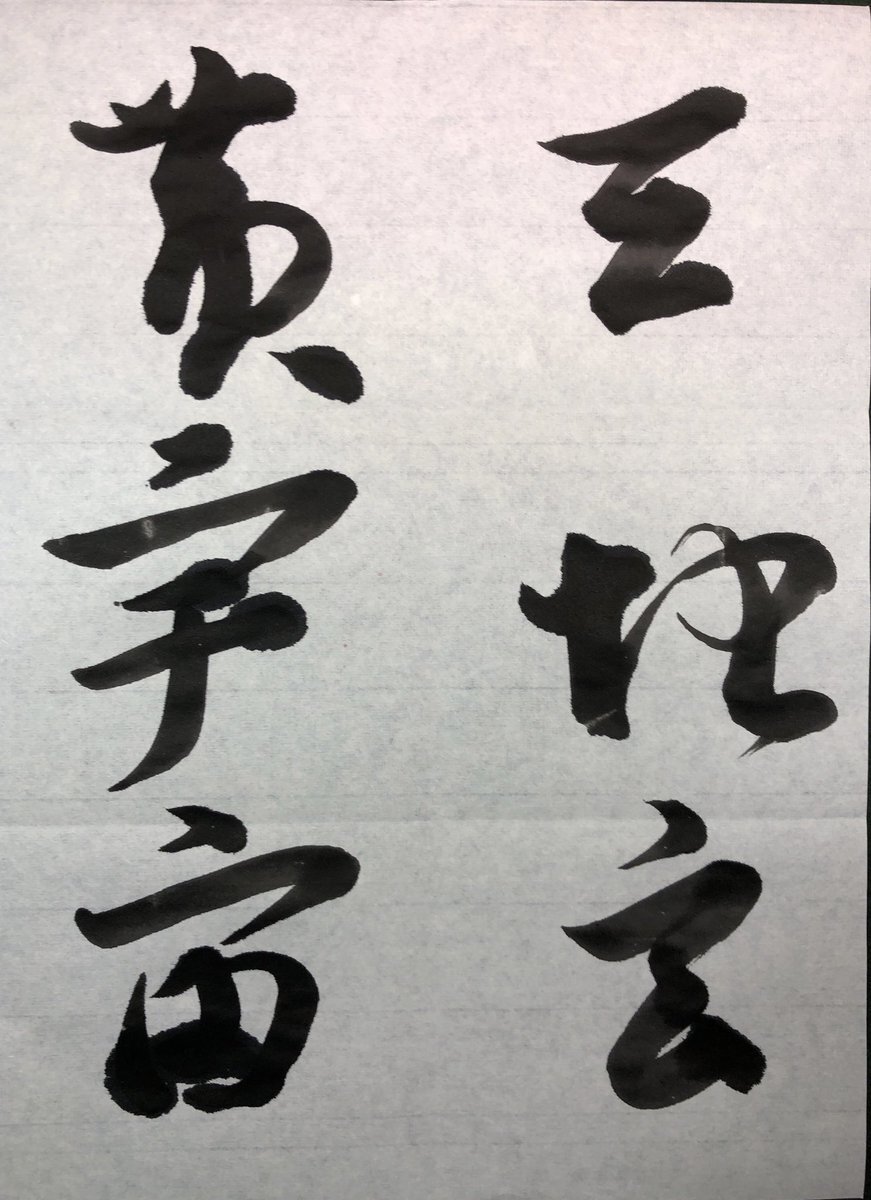 天地玄
黄宇宙